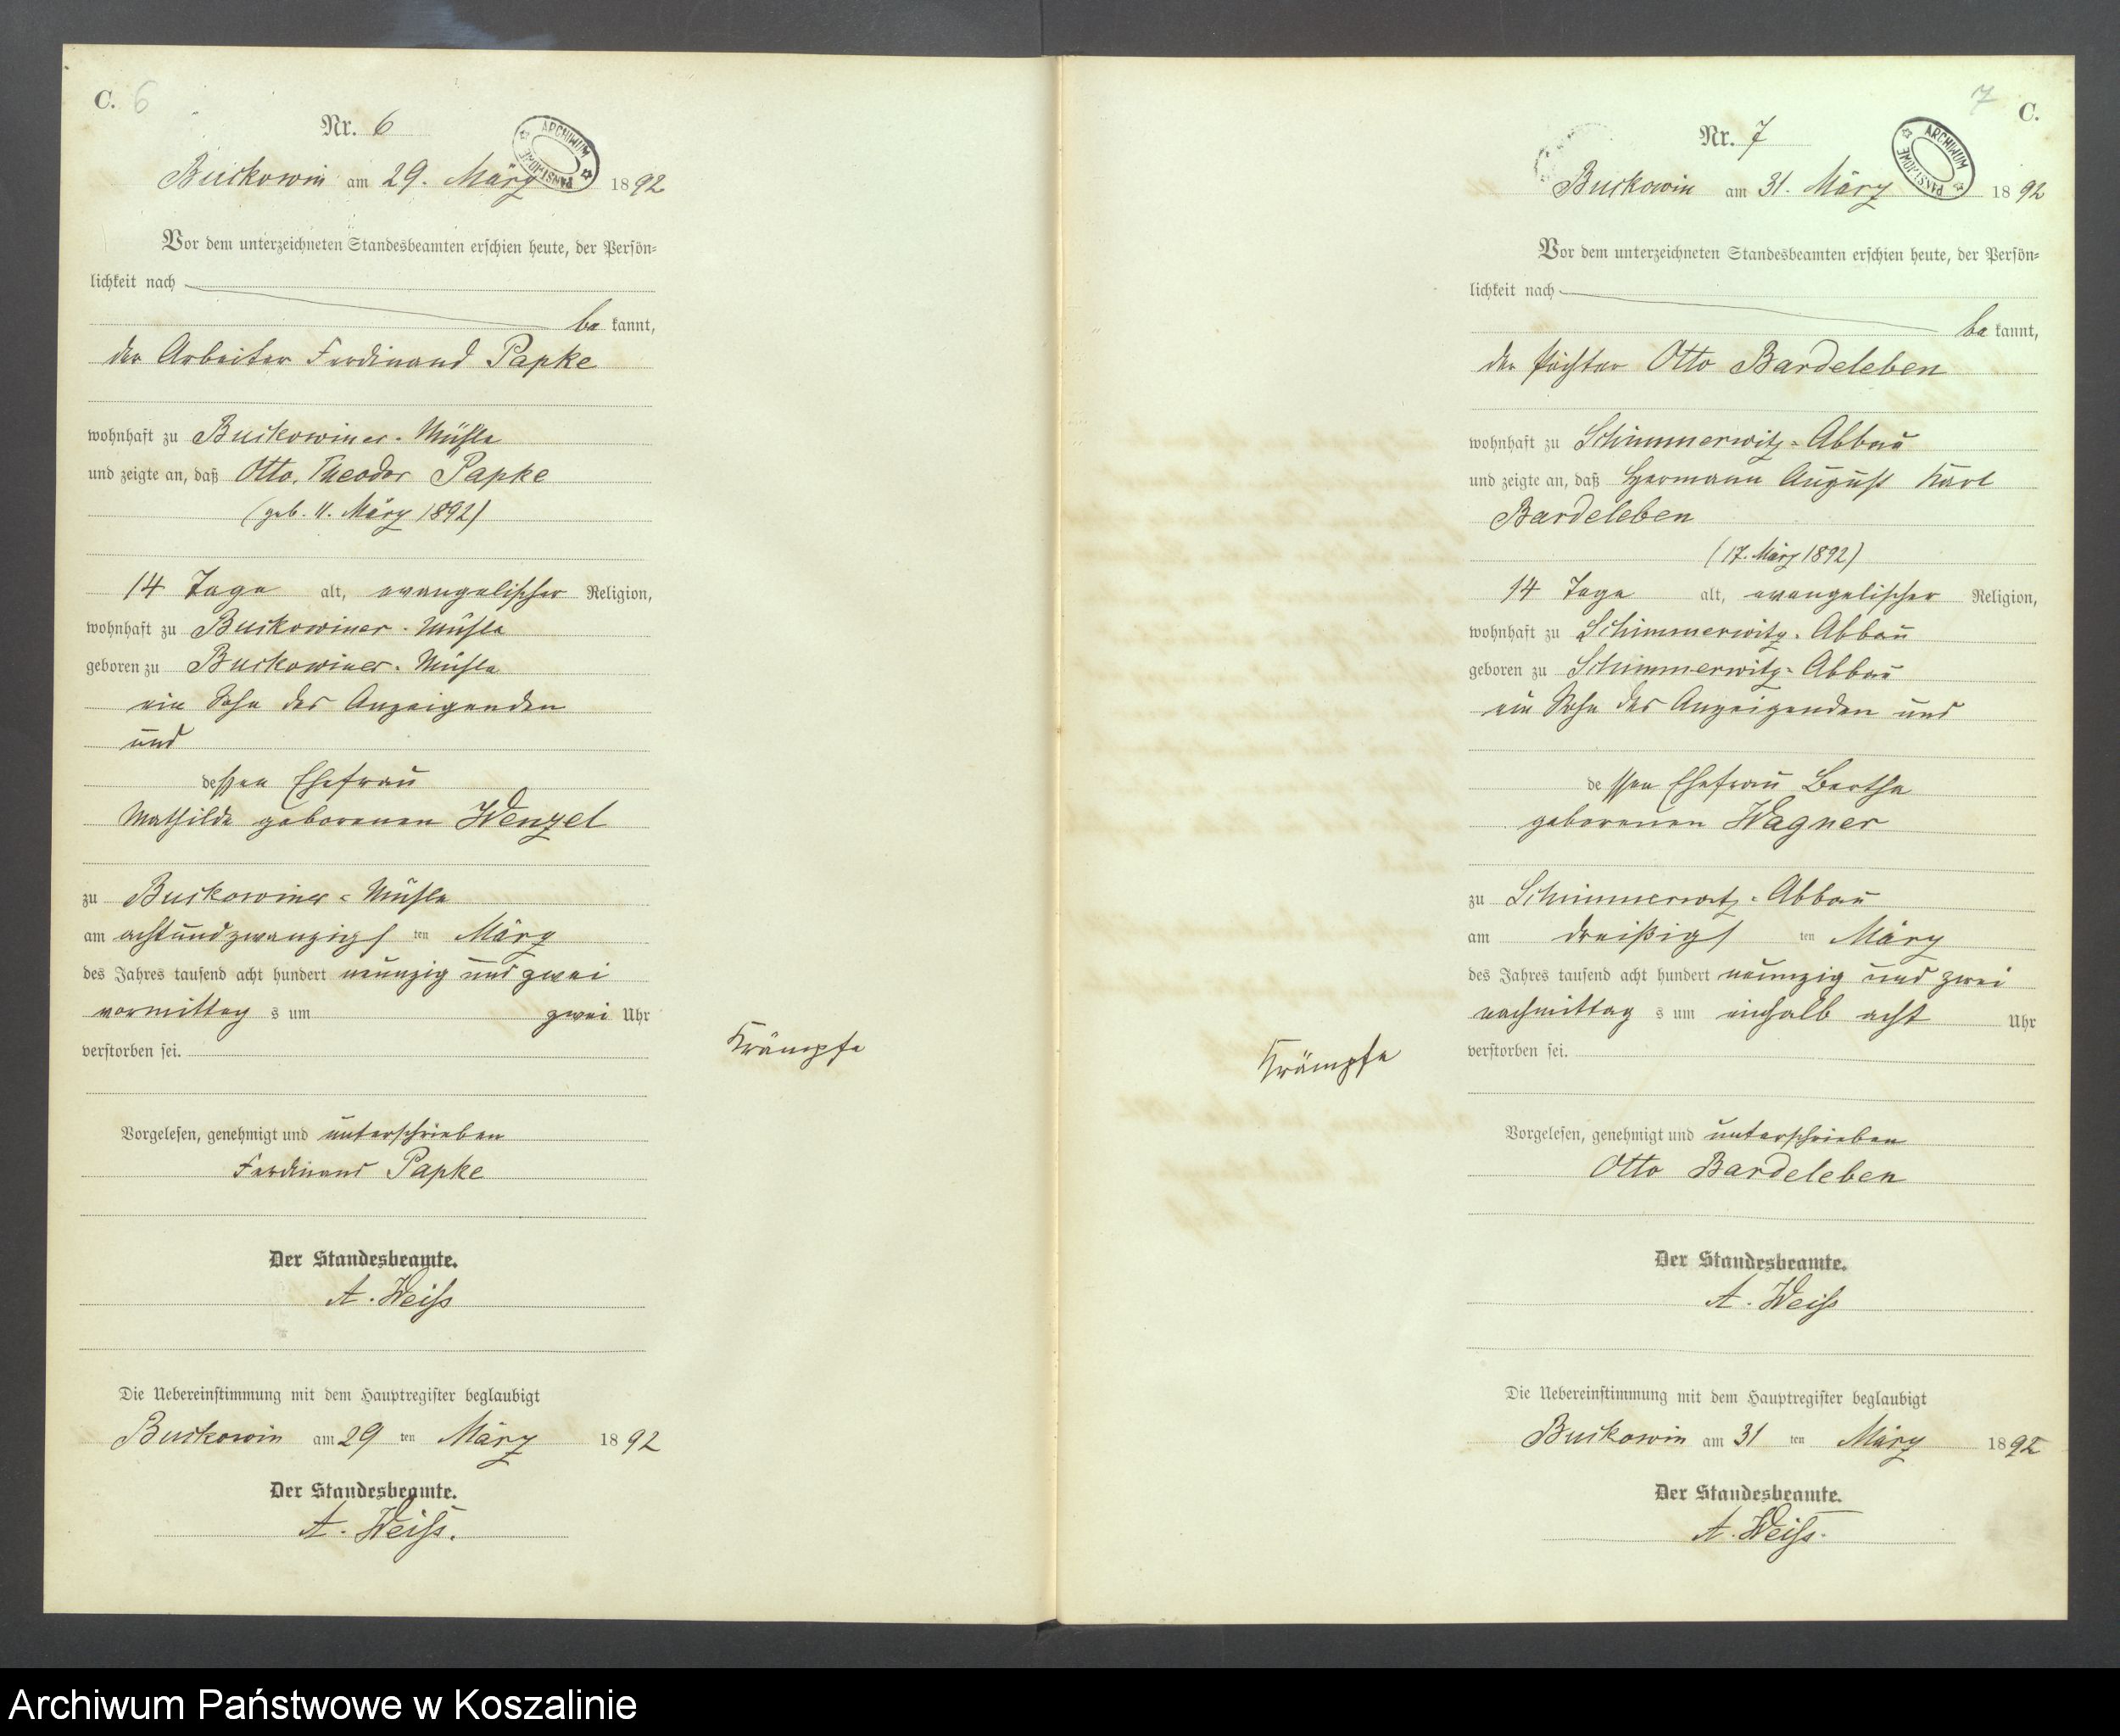 C. 6
Nr. 6
ARCHIWUM PAŃSTWOWE
Buckowin am 29. März 1892
Vor dem unterzeichneten Standesbeamten erschien heute, der Persön=
lichkeit nach
be kannt,
der Arbeiter Ferdinand Papke
wohnhaft zu Buckowiner-Mühle
und zeigte an, daß Otto, Theodor Papke
(geb. 11. März 1892)
14 Tage alt, evangelischer Religion,
wohnhaft zu Buckowiner-Mühle
geboren zu Buckowiner-Mühle
ein Sohn des Anzeigenden
und
dessen Ehefrau
Mathilde geborenen Wenzel
zu Buckowiner-Mühle
am achtundzwanzigs ten März
des Jahres tausend acht hundert neunzig und zwei
vormittag s um zwei Uhr
verstorben sei.
Krämpfe
Vorgelesen, genehmigt und unterschrieben
Ferdinand Papke
Der Standesbeamte.
A. Weiss
Die Uebereinstimmung mit dem Hauptregister beglaubigt
Buckowin am 29 ten März 1892
Der Standesbeamte.
A. Weiss.
7 C.
Nr. 7
ARCHIWUM PAŃSTWOWE
Buckowin am 31. März 1892
Vor dem unterzeichneten Standesbeamten erschien heute, der Persön=
lichkeit nach
be kannt,
der Pächter Otto Bardeleben
wohnhaft zu Schimmerwitz-Abbau
und zeigte an, daß Hermann August Karl
Bardeleben
(17. März 1892)
14 Tage alt, evangelischer Religion,
wohnhaft zu Schimmerwitz-Abbau
geboren zu Schimmerwitz-Abbau
ein Sohn des Anzeigenden und
dessen Ehefrau Bertha
geborenen Wagner
zu Schimmerwitz-Abbau
am dreißigs ten März
des Jahres tausend acht hundert neunzig und zwei
nachmittag s um einhalb acht Uhr
verstorben sei.
Krämpfe
Vorgelesen, genehmigt und unterschrieben
Otto Bardeleben
Der Standesbeamte.
A. Weiss
Die Uebereinstimmung mit dem Hauptregister beglaubigt
Buckowin am 31 ten März 1892
Der Standesbeamte.
A. Weiss.
Archiwum Państwowe w Koszalinie